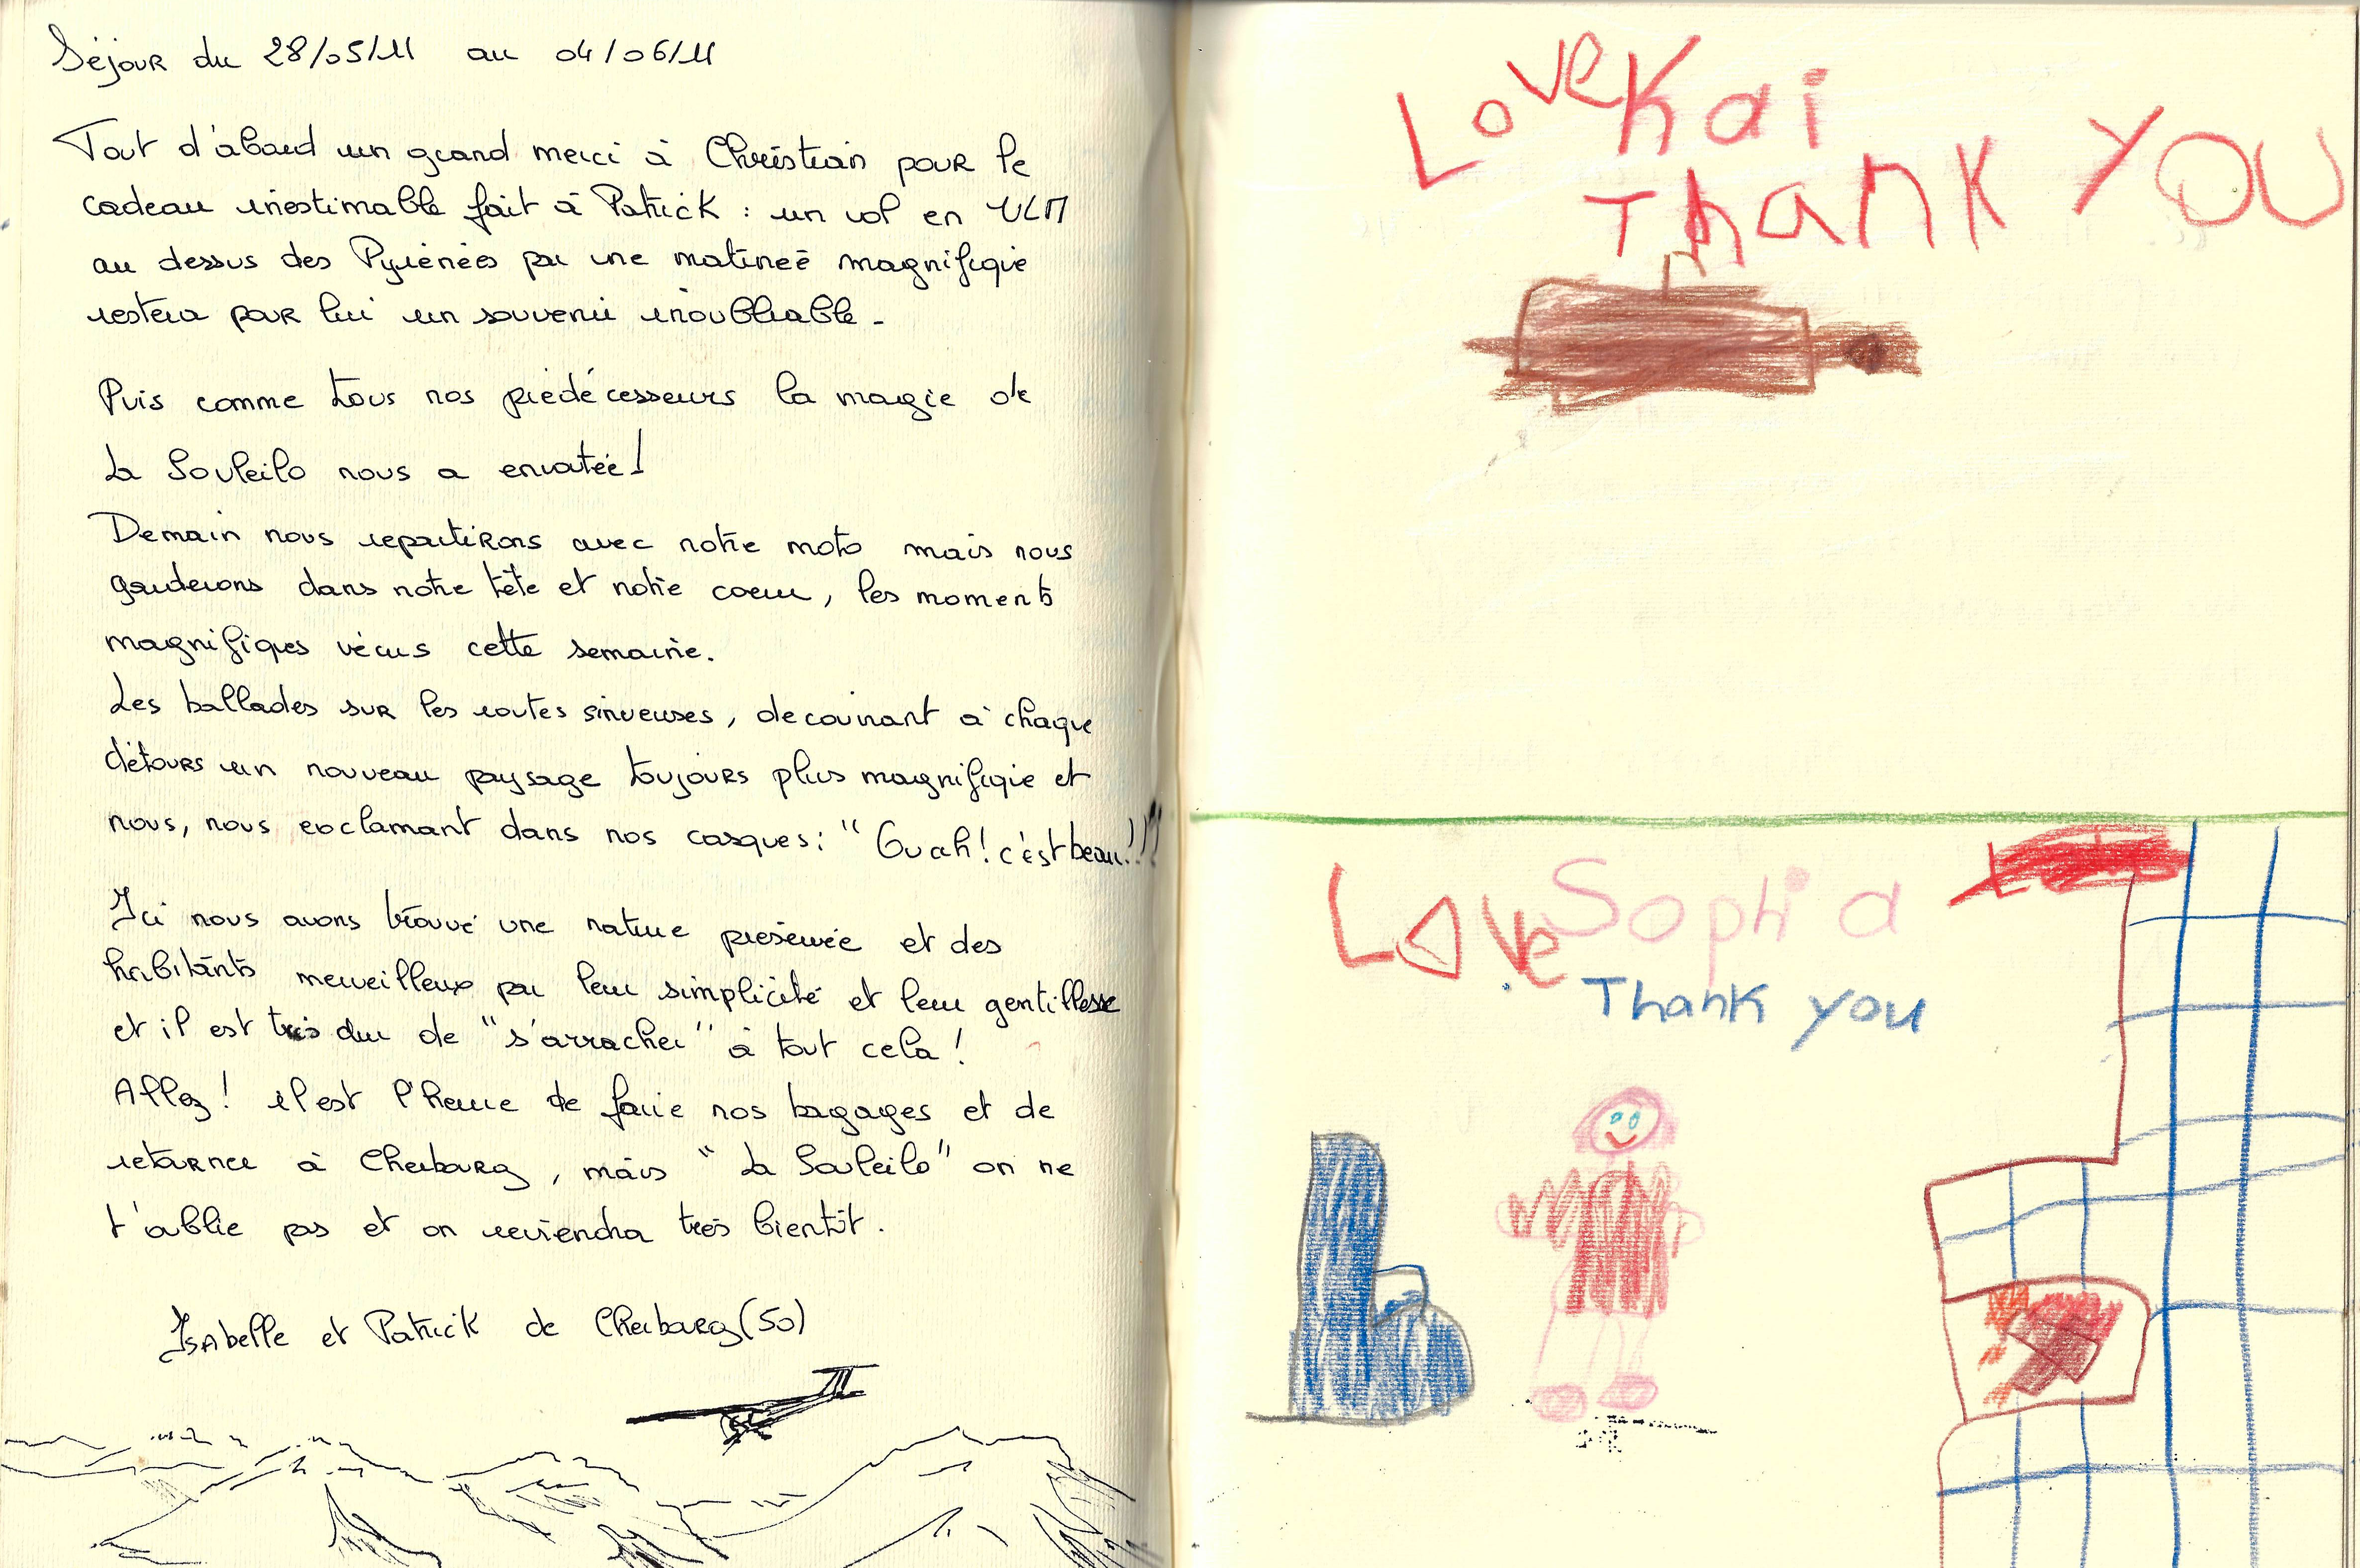 Séjour du 28/05/11 au 04/06/11
Tout d'abord un grand merci à Christian pour le
cadeau inestimable fait à Patrick : un vol en ULM
au dessus des Pyrénées par une matinée magnifique
restera pour lui un souvenir inoubliable -
Puis comme tous nos prédécesseurs la magie de
La Souleilo nous a envoutée!
Demain nous repartirons avec notre moto mais nous
garderons dans notre tête et notre coeur, les moments
magnifiques vécus cette semaine.
Les ballades sur les routes sinueuses, decouvrant à chaque
détours un nouveau paysage toujours plus magnifique et
nous, nous exclamant dans nos casques : "Ouah! c'est beau!!!"
Ici nous avons trouvé une nature préservée et des
habitants merveilleux par leur simplicité et leur gentillesse
et il est très dur de "s'arracher" à tout cela!
Allez! il est l'heure de faire nos bagages et de
retourner à Cherbourg, mais "La Souleilo" on ne
t'oublie pas et on reviendra très bientôt.
Isabelle et Patrick de Cherbourg (50)
Love Kai
Thank YOU
Love Sophia
Thank you